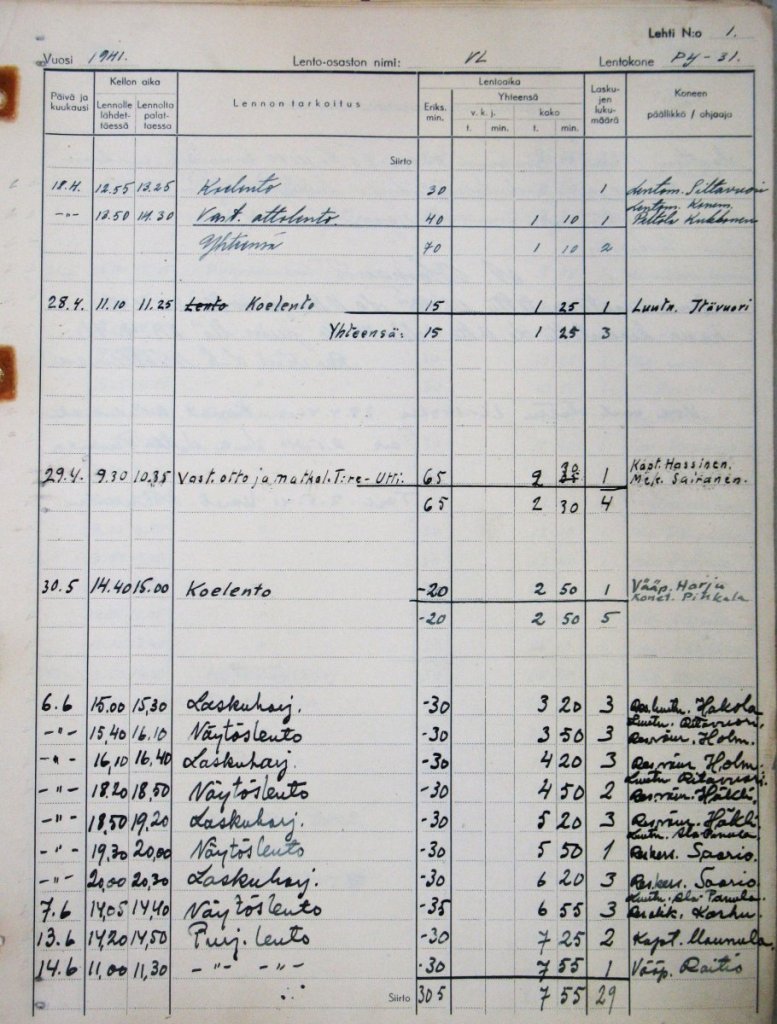 Lehti N:o 1.
Vuosi 1941. Lento-osaston nimi: VL Lentokone PY-31.
Päivä ja kuukausi Kellon aika Lennon tarkoitus Lentoaika Laskujen lukumäärä Koneen päällikkö / ohjaaja
Lennolle lähdettäessä Lennolta palattaessa Eriks. min. Yhteensä
v. k. j. koko
t. min. t. min.
Siirto
18.4. 12.55 13.25 Koelento 30 1 Lentom.
Lentom.
-"- 13.50 14.30 Vast. ottolento. 40 1 10 1 Peltola Kukkonen
Yhteensä 70 1 10 2
28.4. 11.10 11.25 Lento Koelento 15 1 25 1 Luutn. Itävuori
Yhteensä: 15 1 25 3
30 Kapt. Hassinen.
29.4. 9.30 10.35 Vast. otto ja matkal. T:re - Utti. 65 2 35 1 Mek. Sairanen.
65 2 30 4
Vääp. Harju
30.5 14.40 15.00 Koelento -20 2 50 1 Konet. Pihkala
-20 2 50 5
6.6 15.00 15,30 Laskuharj. -30 3 20 3 Res.luutn. Hakola
Luutn. Ritavuori.
-"- 15,40 16.10 Näytöslento -30 3 50 3 Res.vänr. Holm.
-"- 16,10 16.40 Laskuharj. -30 4 20 3 Res.vänr. Holm.
Luutn Ritavuori.
-"- 18.20 18,50 Näytöslento -30 4 50 2 Res.vänr. Häkli.
-"- 18,50 19,20 Laskuharj. -30 5 20 3 Res.vänr. Häkli.
Luutn. Ala Panula.
-"- 19,30 20,00 Näytöslento -30 5 50 1 Res.kers. Saario.
-"- 20,00 20,30 Laskuharj. -30 6 20 3 Res.kers. Saario
Luutn. Ala Panula.
7.6 14,05 14,40 Näytöslento -35 6 55 3 Res.alik. Karhu.
13.6 14,20 14,50 Purj. lento -30 7 25 2 Kapt. Maunula.
14.6 11,00 11,30 -"- -"- -30 7 55 1 Vääp. Raitio
Siirto 305 7 55 29